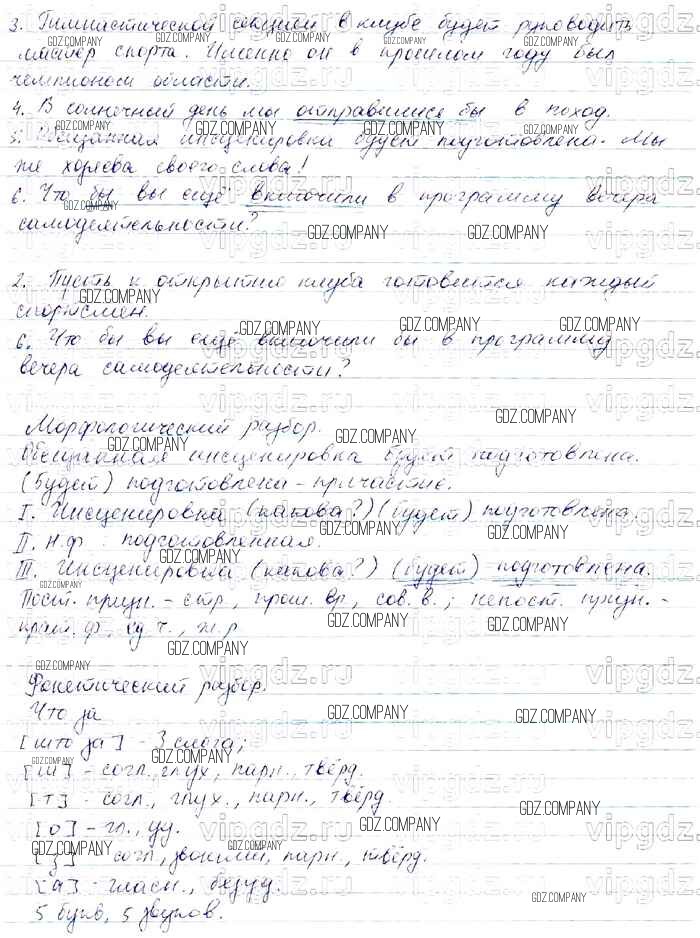 3. Гимнастической секцией в клубе будет руководить
мастер спорта. Именно он в прошлом году был
чемпионом области.
4. В солнечный день мы отправились бы в поход.
5. Обещанная инсценировка будет подготовлена. Мы
же хозяева своего слова!
6. Что бы вы ещё включили в программу вечера
самодеятельности?
2. Пусть к открытию клуба готовится каждый
спортсмен.
6. Что бы вы ещё включили бы в программу
вечера самодеятельности?
Морфологический разбор.
Обещанная инсценировка будет подготовлена.
(будет) подготовлена - причастие.
I. Инсценировка (какова?) (будет) подготовлена.
II. н.ф. подготовленная.
III. Инсценировка (какова?) (будет) подготовлена.
Пост. призн. - стр., прош. вр., сов. в.; непост. призн. -
крат. ф., ед. ч., ж. р.
Фонетический разбор.
Что за
[што за] - 3 слога;
[ш] - согл., глух., парн., твёрд.
[т] - согл., глух., парн., твёрд.
[о] - гл., уд.
[з] - согл., звонкий, парн., твёрд.
[а] - гласн., безуд.
5 букв, 5 звуков.
GDZ.COMPANY
vipgdz.ru